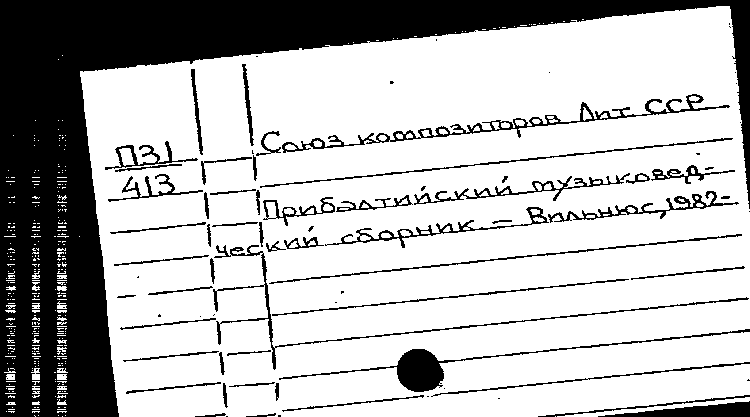 Союз композиторов Лит ССР
П31
413
Прибалтийский музыковед-
ческий сборник. – Вильнюс, 1982-